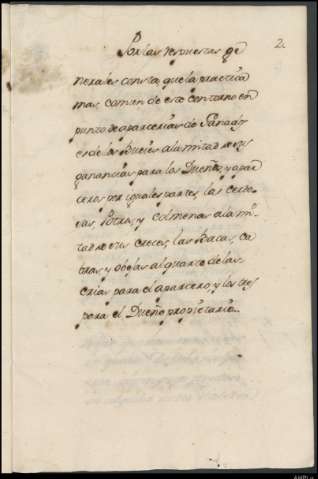 2.
Por las respuestas ge
nerales consta, que la practica
mas comun de este contorno en
punto de aparcerias de Ganados
es de los Bueies a la mitad de sus
ganancias para los Dueños, y apar
ceros por iguales partes, las Cerdo
sas, Potros, y Colmenas a la mi
tad de sus creces, las Bacas, Ca
bras, y obejas al quarto de las
Crias para el aparcero y los tres
para el Dueño propietario.